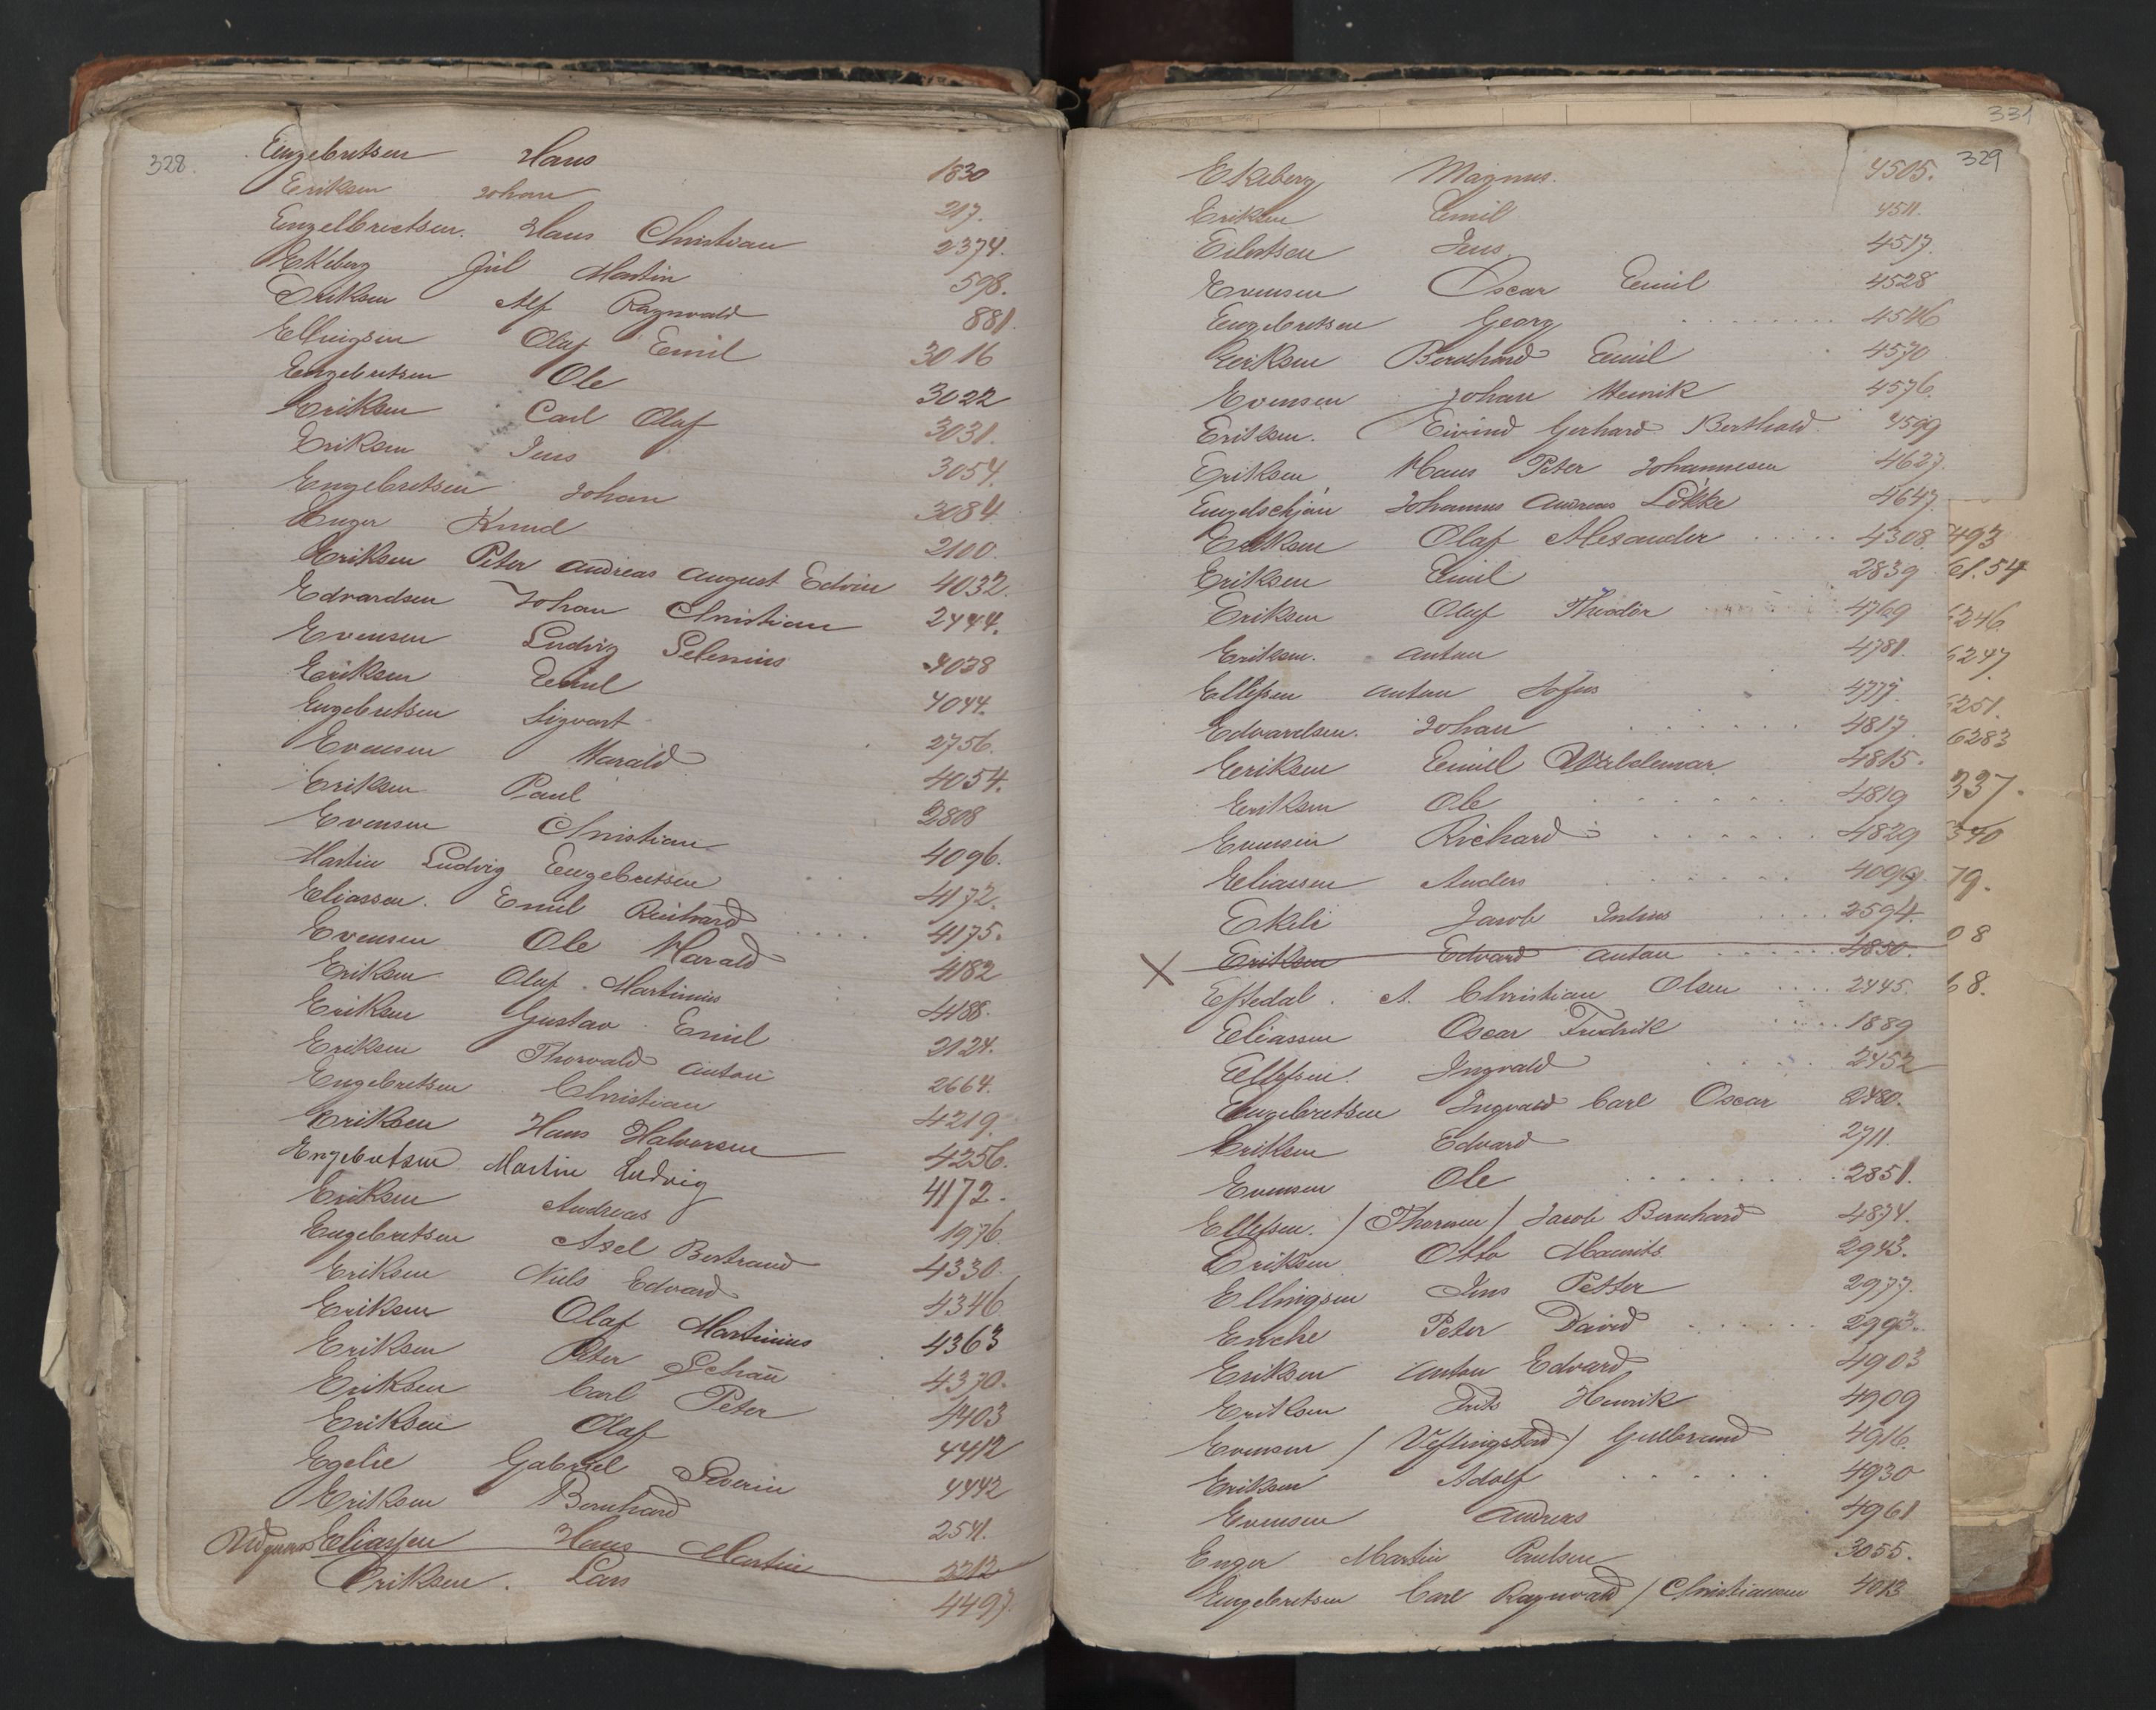 328.
Engebretsen Hans 1830
Eriksen Johan 217.
Engelbrectsen. Hans Christian 2374.
Ekeberg Jul Martin 598.
Eriksen Alf Ragnvald 881.
Ellingsen Olaf Emil 3016
Engebretsen Ole 3022
Eriksen Carl Olaf 3031.
Eriksen Jens 3054.
Engebretsen Johan 3084
Enger Knud 2100.
Eriksen Peter Andreas August Edvin 4032.
Edvardsen Johan Christian 2444.
Evensen Ludvig Selenius 4038
Eriksen Emil 4044.
Engebretsen Sigvart 2756.
Evensen Harald 4054.
Eriksen Paul 2808
Evensen Christian 4096.
Martin Ludvig Engebretsen 4172.
Eliassen. Emil Reinhard 4175.
Evensen Ole Harald 4182
Eriksen Olaf Martinius 4188.
Eriksen Gustav Emil 2124.
Eriksen Thorvald Anton 2664.
Engebretsen Christian 4219.
Eriksen Hans Halvorsen 4256.
Engebretsen Martin Ludvig 4172.
Eriksen Andreas 1976.
Engebretsen Axel Bertrand 4330.
Eriksen Nils Edvard 4346
Eriksen Olaf Martinius 4363
Eriksen Peter Schau 4370.
Eriksen Carl Peter 4403
Eriksen Olaf 4412
Egelie Gabriel Severin 4442
Eriksen Bernhard 2541.
Udgaaet Eliassen Hans Martin 2212
Eriksen. Lars 4497.
331
329
Ekeberg Magnus. 4505.
Eriksen Emil 4511.
Eilertsen Jens. 4517.
Evensen Oscar Emil 4528
Engebretsen Georg 4546
Eriksen Bernhard Emil 4570
Evensen Johan Henrik 4576.
Eriksen. Eivind Gerhard Berthold 4599
Eriksen Hans Peter Johannesen 4627.
Engelschjøn Johannes Andreas Løkke 4647.
Eriksen Olaf Alexander 4308. 493
Eriksen Emil 2839 61.54
Eriksen Olaf Theodor 4769 6246.
Eriksen. Anton 4781. 6247.
Ellefsen Anton Sofus 4777. 6251.
Edvardsen. Johan 4817. 6283
Eriksen Emil Waldemar. 4815. 337.
Eriksen Ole 4819
Evensen Richard 4829 340
Eliassen Anders 4099. 79.
Ekeli Jacob Julius 2594. 08
X Eriksen Edvard Anton 4850.
Eftedal. A. Christian Olsen 2445. 68.
Eliassen Oscar Fredrik 1889
Ellefsen. Ingvald 2452
Engebretsen Ingvald Carl Oscar 2480.
Eriksen Edvard 2711.
Evensen Ole 2851.
Ellefsen. / Thoresen / Jacob Bernhard 4874.
Eriksen Otto Maurits. 2943.
Ellingsen Jens Petter 2977.
Enche Peter David 2993.
Eriksen Anton Edvard 4903
Eriksen Frits Henrik 4909
Evensen / Veflingstad / Gulbrand 4916.
Eriksen Adolf 4930
Evensen Andreas 4961
Enger Martin Paulsen 3055.
Engebretsen Carl Ragnvald / Christiansen 4013